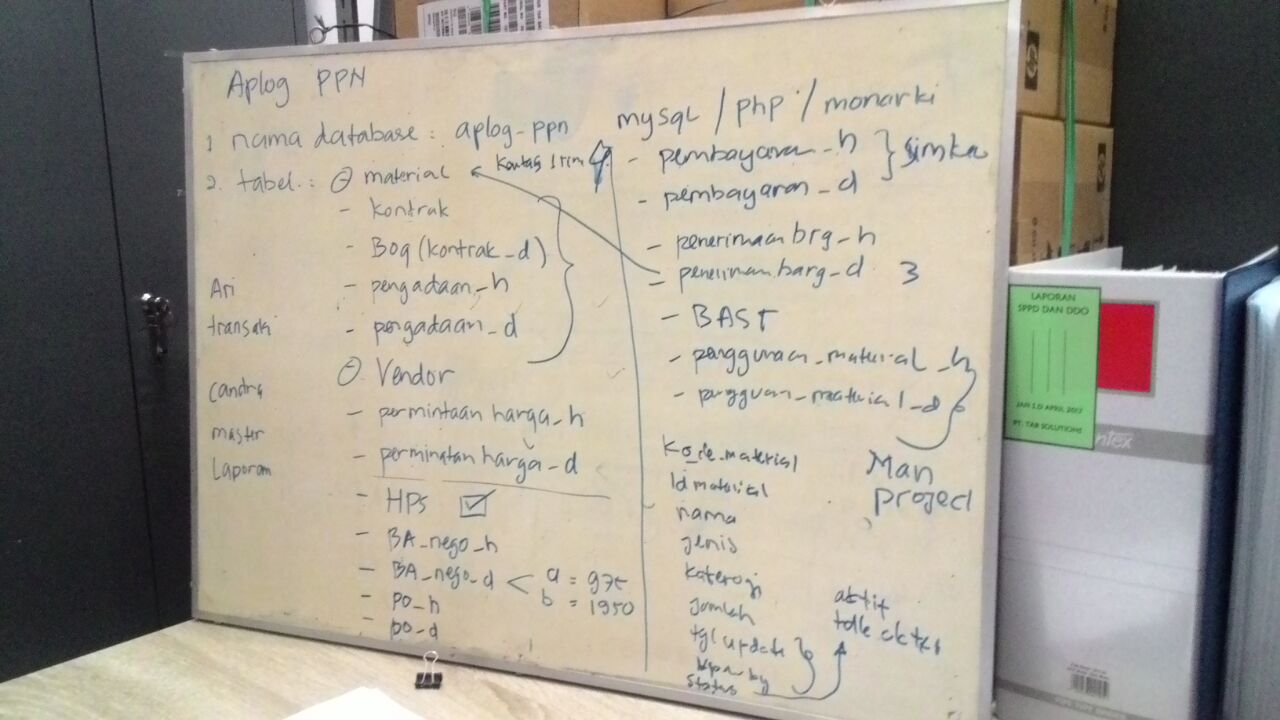 Aplog PPN
1 nama database : aplog_ppn
2. tabel. : material
- kontrak
- BOQ (kontrak_d)
- pengadaan_h
- pengadaan_d
Vendor
- permintaan harga_h
- perminatan harga_d
- HPS
- BA_nego_h
- BA_nego_d < a = 975
b = 1950
- po_h
- po_d
Ari
transaksi
candra
master
Laporan
mysql / php / monarki
- pembayaran_h } simka
- pembayaran_d
- penerimaan brg_h
- peneriman barg_d 3
- BAST
- penggunaan_material_h
- pengguan_material_d
Man
project
Kode_material
Id material
nama
jenis
kategori
jumlah
tgl update
status
aktif
LAPORAN
SPPD DAN DDO
JAN S.D APRIL 2017
PT. TAB SOLUTIONS